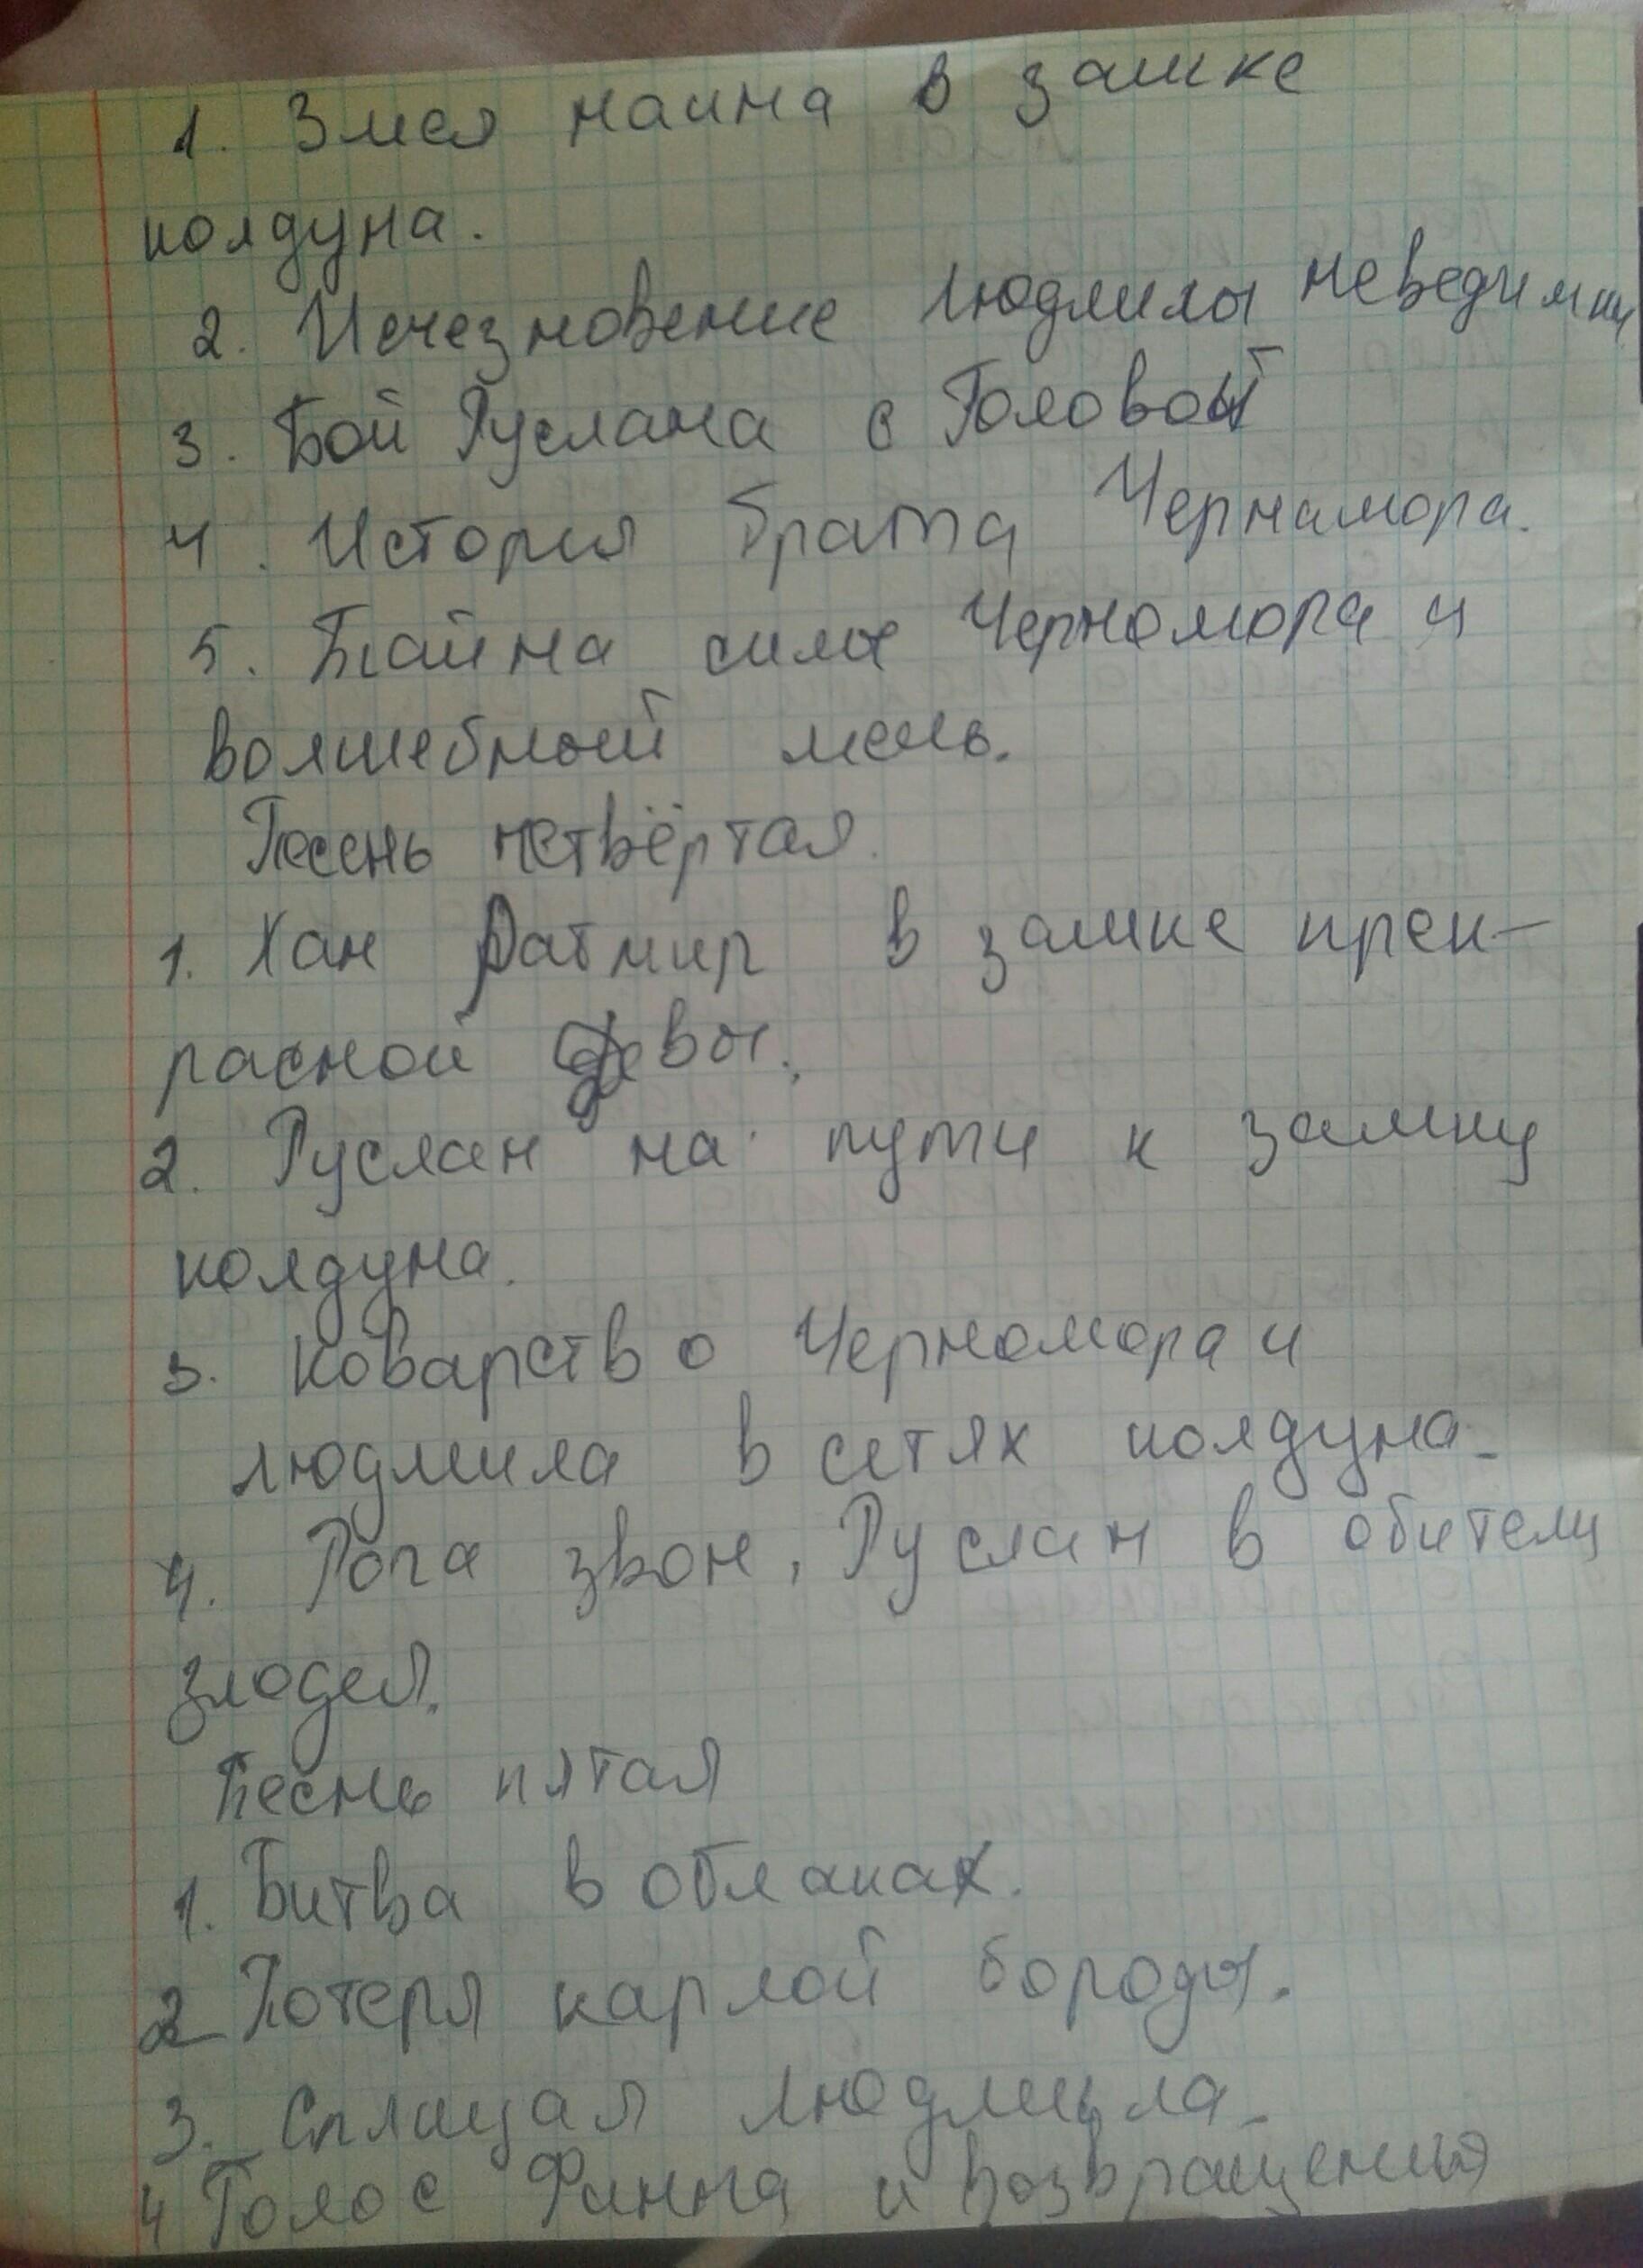 1. Змея наина в замке
колдуна.
2. Исчезновение Людмилы неведимки
3. Бой Руслана с Головой
4. История брата Чернамора.
5. Тайна силы Черномора и
волшебный мечь.
Песнь четвёртая.
1. Хан Ратмир в замке прек-
расной девы.
2. Руслан на пути к замку
колдуна.
3. Коварство Черномора и
людмила в сетях колдуна.
4. Рога звон, Руслан в обители
злодея.
Песнь пятая
1. Битва в облаках.
2 Потеря карлой бороды.
3. Спящая людмила.
4 Голос Финна и возвращения